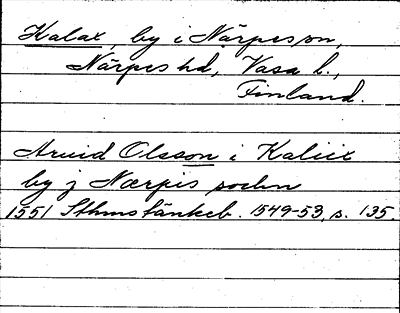 Kalax, by i Närpes sn,
Närpes hd, Vasa l.,
Finland.
Arvid Olsson i Kaliix
by j Nærpis sochn
1551 Sthms tänkeb. 1549-53, s. 135.